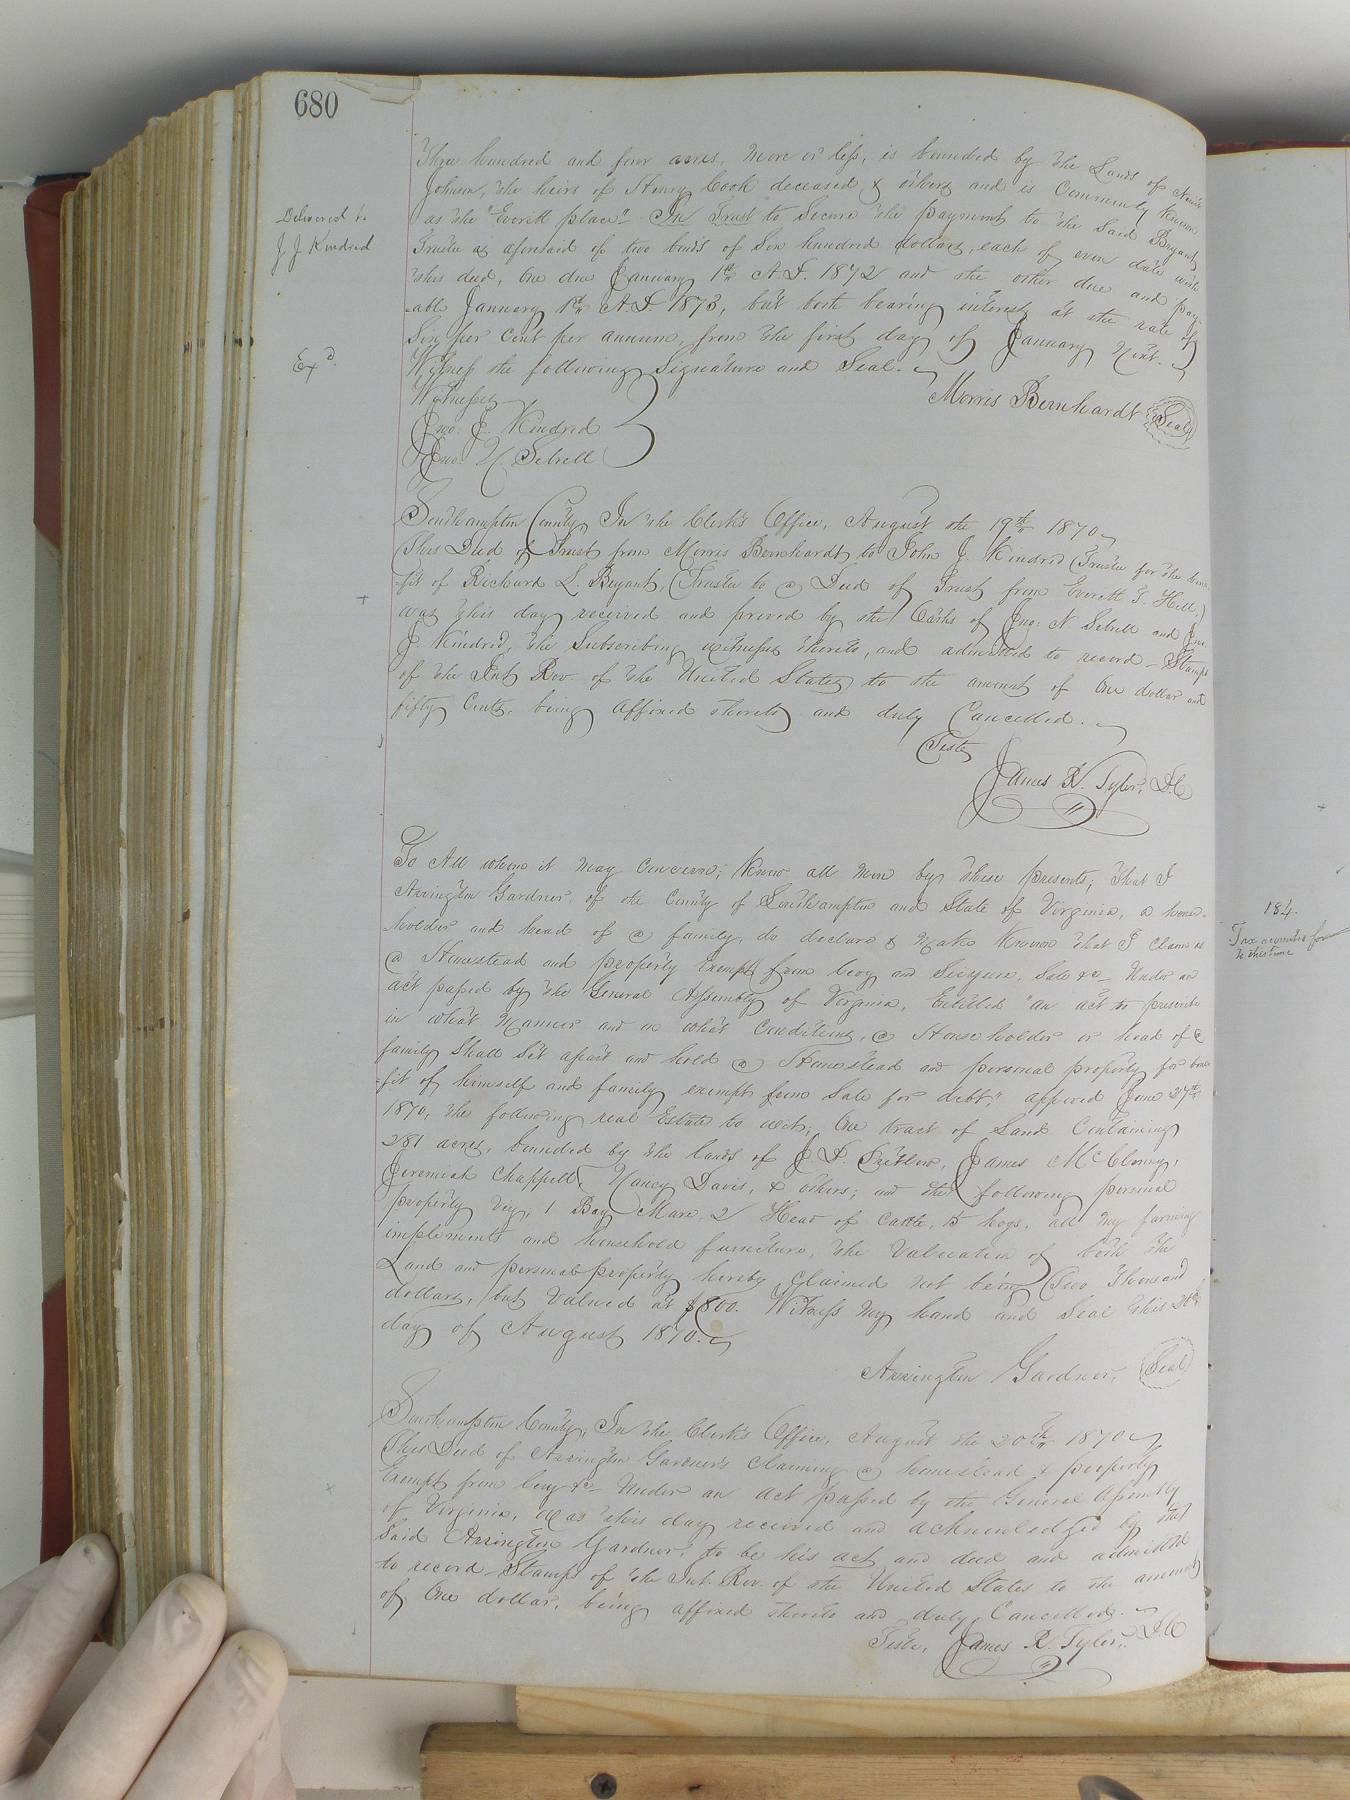 680
Delivered to
J J Kindred
Exd.
Three hundred and four acres, more or less, is bounded by the Lands of
Johnson, the heirs of Henry Cook deceased & others and is Commonly Known
as the "Everett place" In Trust to Secure the payment to the Said Bryant,
Trustee as aforesaid of two bonds of Six hundred dollars, each of even date with
this deed, One due January 1st A.D. 1872 and the other due and pay-
-able January 1st A.D. 1873, but both bearing interest at the rate of
Six per cent per annum, from the first day of January Next.
Witness the following Signature and Seal.
Morris Bernhardt Seal
Witnesses
Jno. J. Kindred
Jno. N Sebrell
Southampton County, In the Clerk's Office, August the 19th 1870
This Deed of Trust from Morris Bernhardt to John J. Kindred (Trustee for the bene-
-fit of Richard L. Bryant, (Trustee to a Deed of Trust from Everett T. Hill,)
was this day received and proved by the Oaths of Jno. N Sebrell and Jno.
J. Kindred, the Subscribing witnesses thereto, and admitted to record - Stamps
of the Int Rev. of the United States to the amount of One dollar and
fifty Cents, being affixed thereto and duly Cancelled.
Teste
James R. Tyler, D.C
To All whom it may Concern; Know all men by these presents; That I
Arrington Gardner, of the County of Southampton and State of Virginia, a house-
holder and head of a family, do declare & Make Known that I claim as
a Homestead and property Exempt from levy and Seizure, Sale &c Under an
act passed by the General Assembly of Virginia, Entitled "an act to prescribe
in what Manner and on what Conditions, a House holder or head of a
family Shall Set apart and hold a Homestead and personal property for bene
-fit of himself and family exempt from Sale for debt," approved June 27th
1870, the following real Estate to wit; One tract of Land Containing
281 acres, bounded by the lands of J. D. Pretlow, James McClenny,
Jeremiah Chappell, Nancy Davis, & others; and the following personal
property viz; 1 Bay Mare, 2 Head of Cattle, 15 hogs, all my farming
implements and household furniture, the Valuation of both the
Land and personal property hereby Claimed not being Two Thousand
dollars, but Valued at $800. Witness my hand and Seal this 20th
day of August 1870.
Arrington Gardner, Seal
Southampton County, In the Clerk's Office, August the 20th 1870
This Deed of Arrington Gardner's Claiming a homestead & property
Exempt from levy &c Under an Act passed by the General Assembly
of Virginia, was this day received and acknowledged by the
Said Arrington Gardner, to be his act and deed and admitted
to record - Stamps of the Int. Rev. of the United States to the amount
of One dollar, being affixed thereto and duly Cancelled.
Teste, James R. Tyler, D.C
184.
to this time